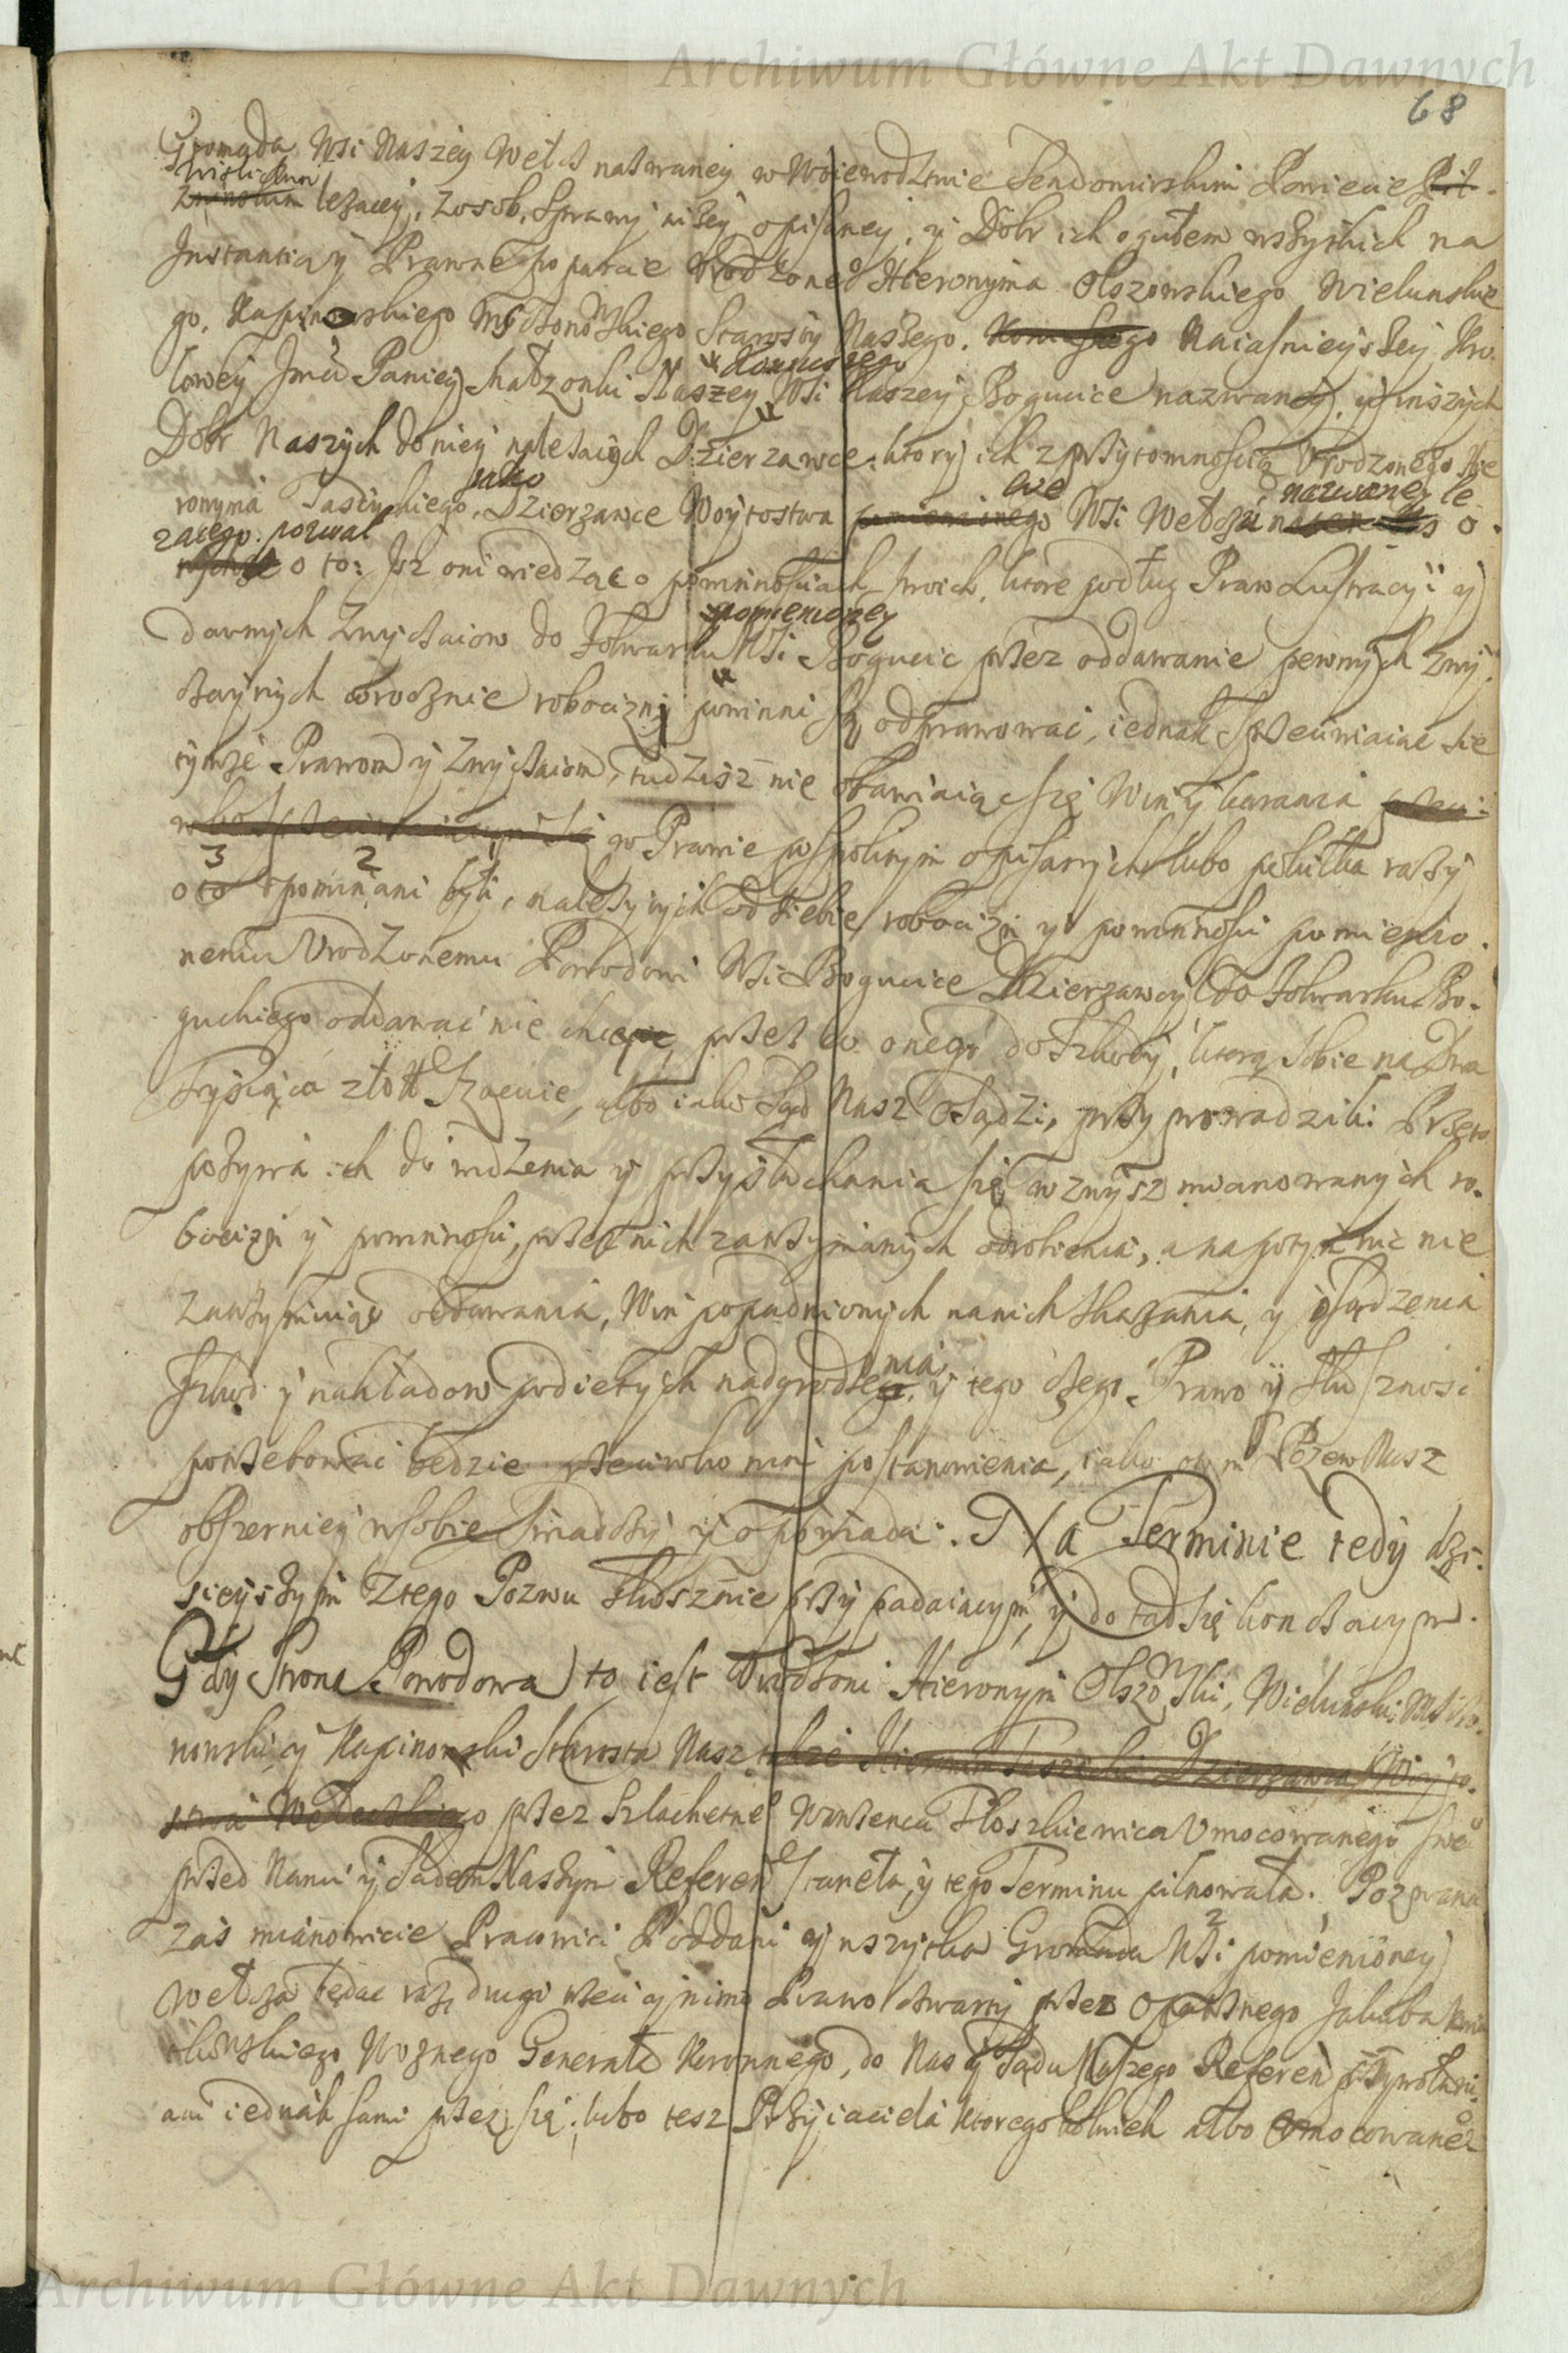 Archiwum Główne Akt Dawnych
68
Gromada Wsi Naszey Wełcz nazwaney w Woiewodztwie Sendomirskim Powiecie Pil-
Wislickim
lezacey, z osob, Sprawy niżey opisaney, y Dobr ich ogułem wszytkich na
Instantią y Prawne poparcie Urodzone° Hieronyma Olszowskiego Wielunskie
go, Kapinowskiego Mszczonowskiego Starosty Naszego. Koniuszego Naiasnieyszey Kro.
Koniuszego
lowey Jmci Paniey Małzonki Naszey, Wsi Naszey Bogucice nazwaney, y inszych
Dobr Naszych do niey należących Dzierzawce: ktory ich z przytomnoscią Urodzonego Hie
jako we nazwaney le
ronyma Taszyckiego, Dzierzawce Woytostwa pomienionego Wsi Wełczu
zącego. pozwał
o to: Isz oni wiedząc o powinnosciach swoich, ktore podług Praw Lustracyi y
pomienioney
dawnych Zwyczaiow do Folwarku Wsi Bogucic przez oddawanie pewnych zwy.
czaynych corocznie robocizny powinni są odprawować, iednak sprzeciwiaiąc się
tymże Prawom y Zwyczaiom, tudziesz nie obawiaiąc się Winy karania
w Prawie pospolitym opisanych lubo po kilka razy
3 2
o to upominani byli, należytych od siebie robocizn y powinnosci pomienio.
nemu Urodzonemu Powodowi Wsi Bogucice Dzierzawcy do Folwarku Bo.
guckiego oddawać nie chcą, przez co onego do szkody, ktorą sobie na Dwa
Tysiąca złott Szacuie, albo iako Sąd Nasz Osądzi, przyprowadzili. Przeto
pozywa ich do widzenia y przysłuchania się wzwysz mianowanych ro.
bocizn y powinnosci, przez nich zatrzymanych odrobienia, a napotym nic nie
zatrzymuiąc oddawania, Win popadnionych na nich skazania, y osądzenia
nia
Szkod y nakładow podiętych nadgrodze, y tego czego Prawo y słusznosc
potrzebować będzie przeciwko nim postanowienia, iako on Pozew Nasz
obszerniey w sobie swiadczy y opowiada. Na Terminie tedy dzi.
sieyszym z tego Pozwu słusznie przypadaiącym, y dotąd się kończącym.
Gdy Strona Powodowa to iest Urodzoni Hieronym Olszowski, Wielunski, Mszczo.
nowski, y Kapinowski Starosta Nasz także Hieronim Taszycki Dzierzawca Woyto.
stwa Wełeckiego przez Szlachetne° Wawrzenca Floszkiewica Umocowanego swe°
przed Nami y Sądem Naszym Referen Stanęła, y tego Terminu pilnowała. Pozwana
2
zas mianowicie Pracowici Poddani y wszytka Gromada Wsi pomienioney
Wełcza będąc raz, drugi trzeci y nimo Prawo czwarty przez Opatrznego Jakuba
Woznego Generała Koronnego, do Nas y Sądu Naszego Referen przywołani,
ani iednak sami przez się, lubo tesz Przyiaciela ktoregokolwiek albo Umocowane°
Archiwum Główne Akt Dawnych